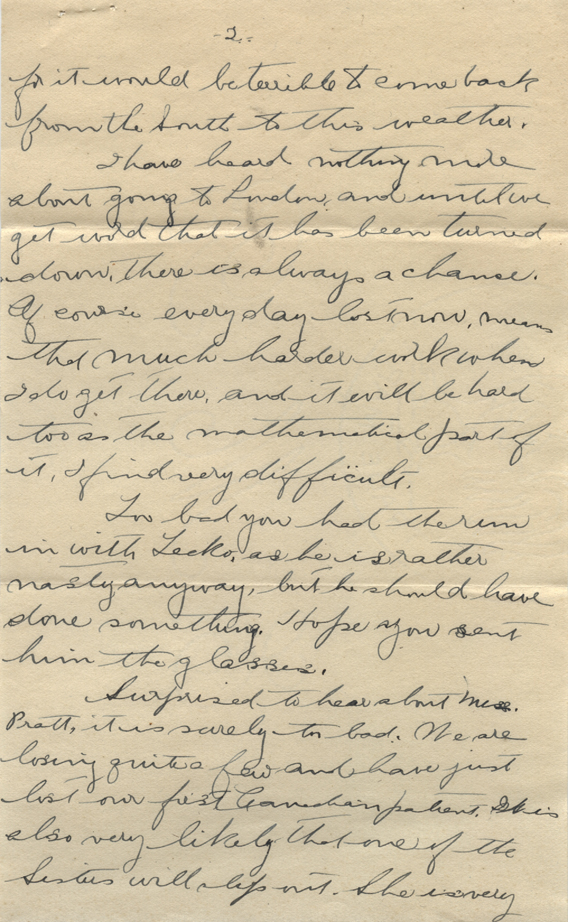 -2-
for it would be terrible to come back
from the South to this weather.
I have heard nothing more
about going to London, and until we
get word that it has been turned
down, there is always a chance.
Of course every day lost now, means
that much harder work when
I do get there, and it will be hard
too as the mathematical part of
it, I find very difficult.
Too bad you had the run
in with Lecko, as he is rather
nasty anyway, but he should have
done something. Hope you sent
him the glasses.
Surprised to hear about Mrs.
Pratt, it is surely to bad. We are
losing quite a few and have just
lost our first Canadian patient. It is
also very likely that one of the
Sisters will slip out. She is very